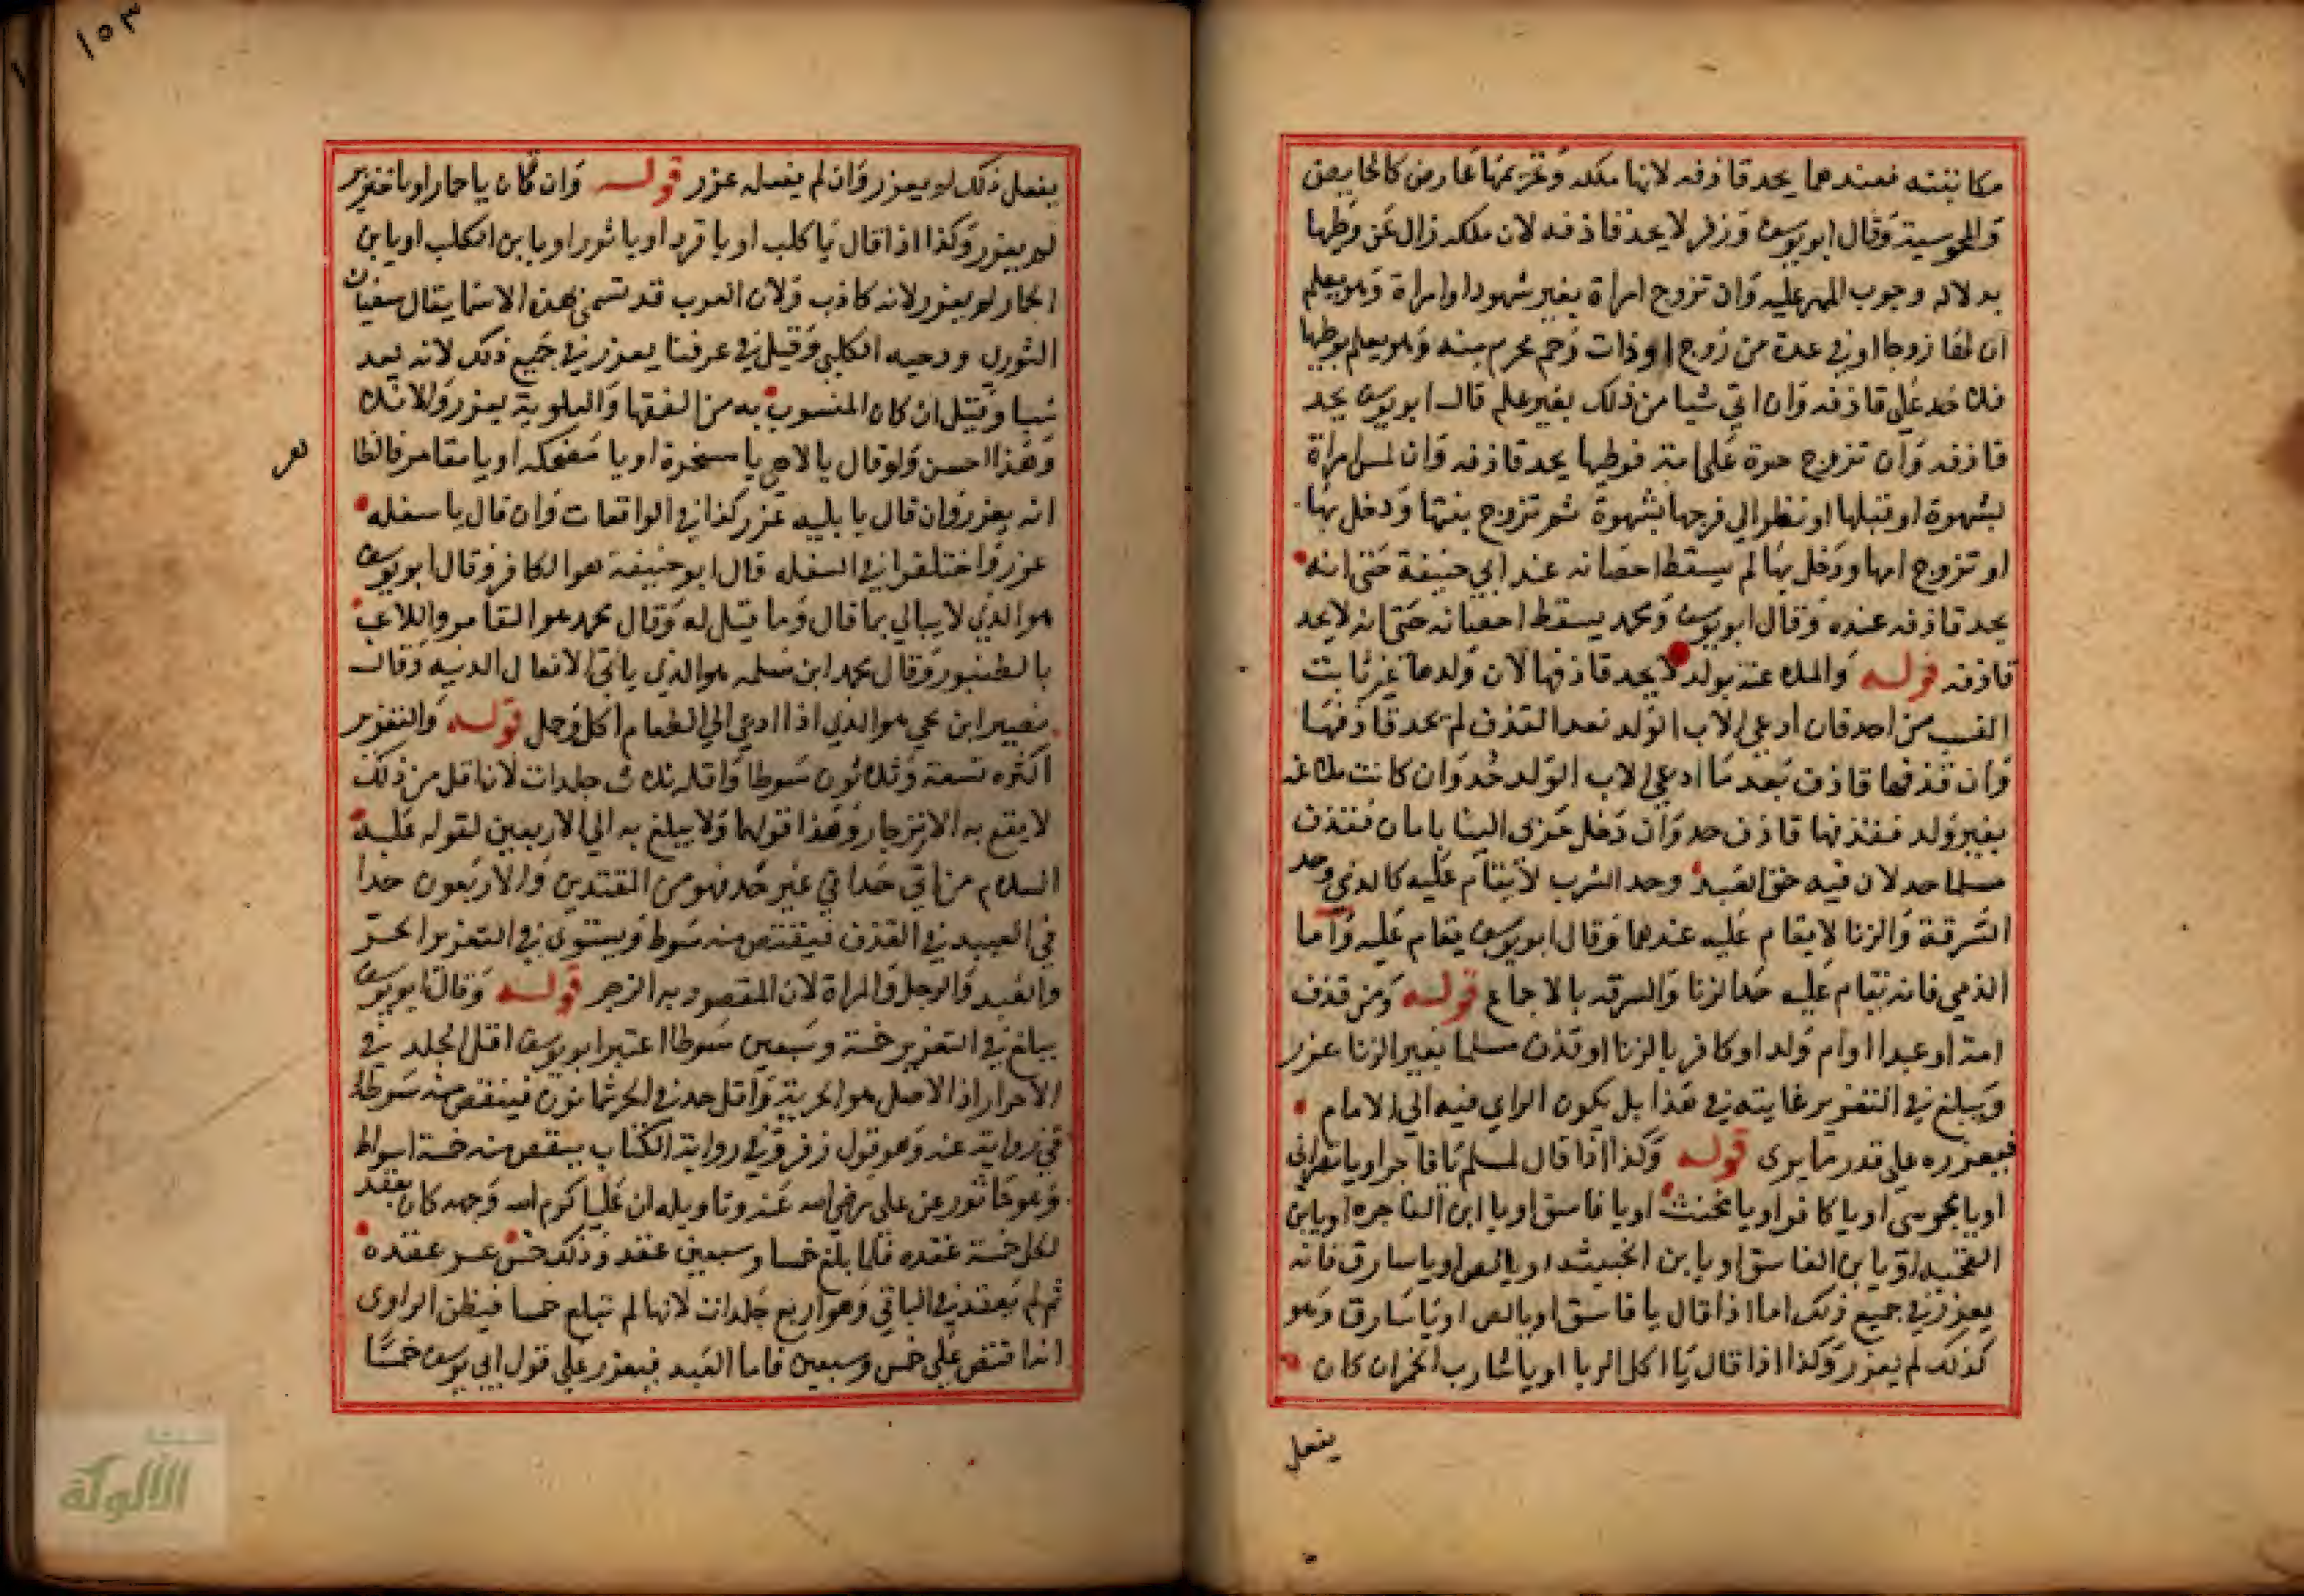 مكاتبته فعندهما يحد قاذفه لانها ملكه وتحريمها عارض كالحايض
والمجوسية وقال ابو يوسف وزفر لا يحد قاذفه لان ملكه زال عن وطيها
بدلالة وجوب المهر عليه وان تزوج امراة بغير شهود او امراة وهو يعلم
ان لها زوجا او في عدة من زوج او ذات رحم محرم منه وهو يعلم بوطيها
فلا حد على قاذفه وان اتي شيا من ذلك بغير علم قال ابو يوسف يحد
قاذفه وان تزوج حرة على امته فوطيها يحد قاذفه وان لمس امراة
بشهوة او قبلها او نظر الى فرجها بشهوة ثم تزوج بنتها ودخل بها
او تزوج امها ودخل بها لم يسقط احصانه عند ابي حنيفة حتى انه
يحد قاذفه عنده وقال ابو يوسف ومحمد يسقط احصانه حتى انه لا يحد
قاذفه قوله والملاعنة بولد لا يحد قاذفها لان ولدها غير ثابت
النسب من احد فان ادعى الاب الولد بعد القذف لم يحد قاذفها
وان قذفها قاذف بعد ما ادعى الاب الولد حد وان كانت ملاعنة
بغير ولد فقذفها قاذف حد وان دخل حربى الينا بامان فقذف
مسلما حد لان فيه حق العبد وحد الشرب لا يقام عليه كالذمي وحد
السرقة والزنا لا يقام عليه عندهما وقال ابو يوسف يقام عليه واما
الذمي فانه يقام عليه حد الزنا والسرقة بالاجماع قوله ومن قذف
امة او عبدا او ام ولد او كافر بالزنا او قذف مسلما بغير الزنا عزر
ويبلغ في التعزير غايته في هذا بل يكون الراي فيه الى الامام
فيعزره على قدر ما يرى قوله وكذا اذا قال لمسلم يا فاجر او يا نصراني
او يا مجوسي او يا كافر او يا مخنث او يا فاسق او يا ابن الفاجره او يا بن
القحبه او يا بن الفاسق او يا بن الخبيثه او يا لص او يا سارق فانه
يعزر في جميع ذلك اما اذا قال يا فاسق او يا لص او يا سارق وهو
كذلك لم يعزر وكذا اذا قال يا اكل الربا او يا شارب الخمر ان كان
يفعل
١٥٣
يفعل ذلك لم يعزر وان لم يفعله عزر قوله وان قال يا حمار او يا خنزير
لم يعزر وكذا اذا قال يا كلب او يا قرد او يا ثور او يا بن الكلب او يا بن
الحمار لم يعزر لانه كاذب ولان العرب قد تسمى بهذه الاسما يقال سفيان
الثوري ودحيه الكلبي وقيل في عرفنا يعزر في جميع ذلك لانه يعد
سبا وقيل ان كان المنسوب به من الفقها والعلوية يعزر والا فلا
وهذا احسن ولو قال يا لاهي يا مسخرة او يا ضحكه او يا مقامر فالظا
انه يعزر وان قال يا بليه عزر كذا في الواقعات وان قال يا سفله
عزر واختلفوا في السفله قال ابو حنيفة هو الكافر وقال ابو يوسف
هو الذي لا يبالي بما قال وما قيل له وقال محمد هو القامر واللاعب
بالطنبور وقال محمد ابن سلمه هو الذي ياتي الافعال الدنيه وقال
نصير ابن يحيى هو الذي اذا ادعي الى الطعام اكل وحمل قوله والتعزير
اكثره تسعة وثلاثون سوطا واقله ثلاث جلدات لان اقل من ذلك
لا يقع به الانزجار وهذا قولهما ولا يبلغ به الى الاربعين لقوله عليه
السلام من اتى حدا في غير حد فهو من المعتدين والاربعون حدا
في العبيد في القذف فينقص منه سوط ويستوى في التعزير الحر
والعبد والرجل والمراة لان المقصود به الزجر قوله وقال ابو يوسف
يبلغ في التعزير خمسة وسبعين سوطا اعتبر ابو يوسف اقل الجلد في
الاحرار اذ الاصل هو الحرية واقل حد في الحر ثمانون فينقص منه سوط
في رواية عنه وهو قول زفر وفي رواية الكتاب ينقص منه خمسة اسواط
وهو ماثور عن على رضي الله عنه وتاويله ان عليا كرم الله وجهه كان يعقد
لكل خمسة عقده فلما بلغ خمسا وسبعين عقد وذلك خمس عسر عقده
ثم لم يعقد في الباقي وهو اربع جلدات لانها لم تبلغ خمسا فيظن الراوى
انه اقتص على خمس وسبعين فاما العبد فيعزر على قول ابي يوسف خمسا